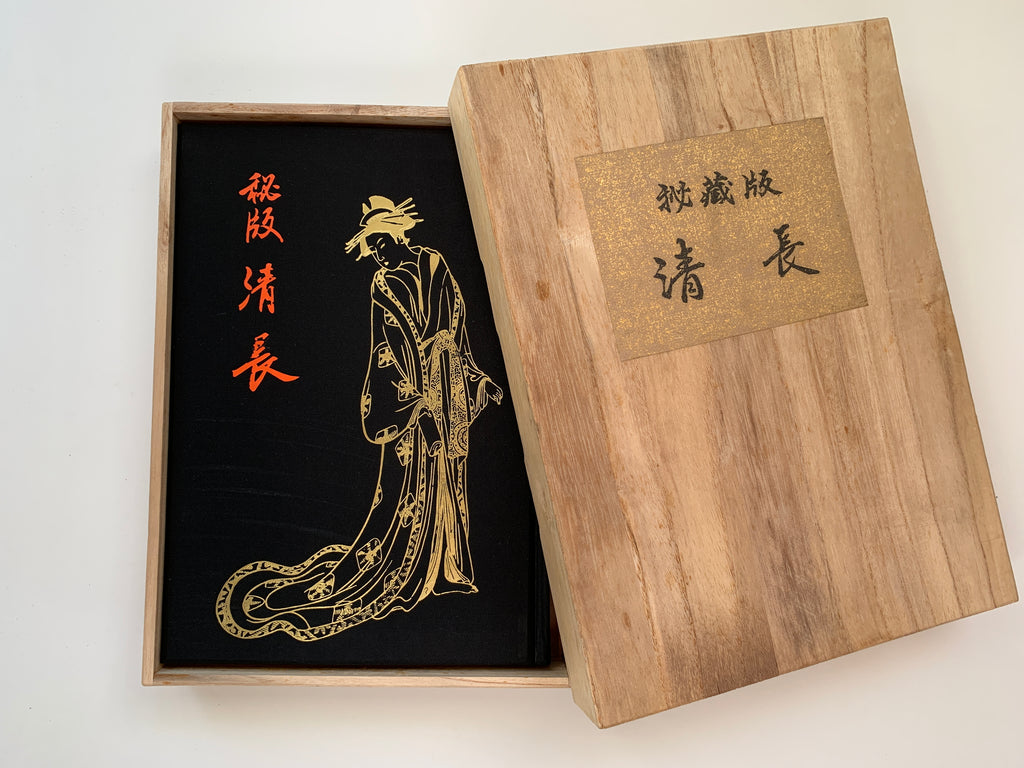 秘版 清長
秘藏版
清長